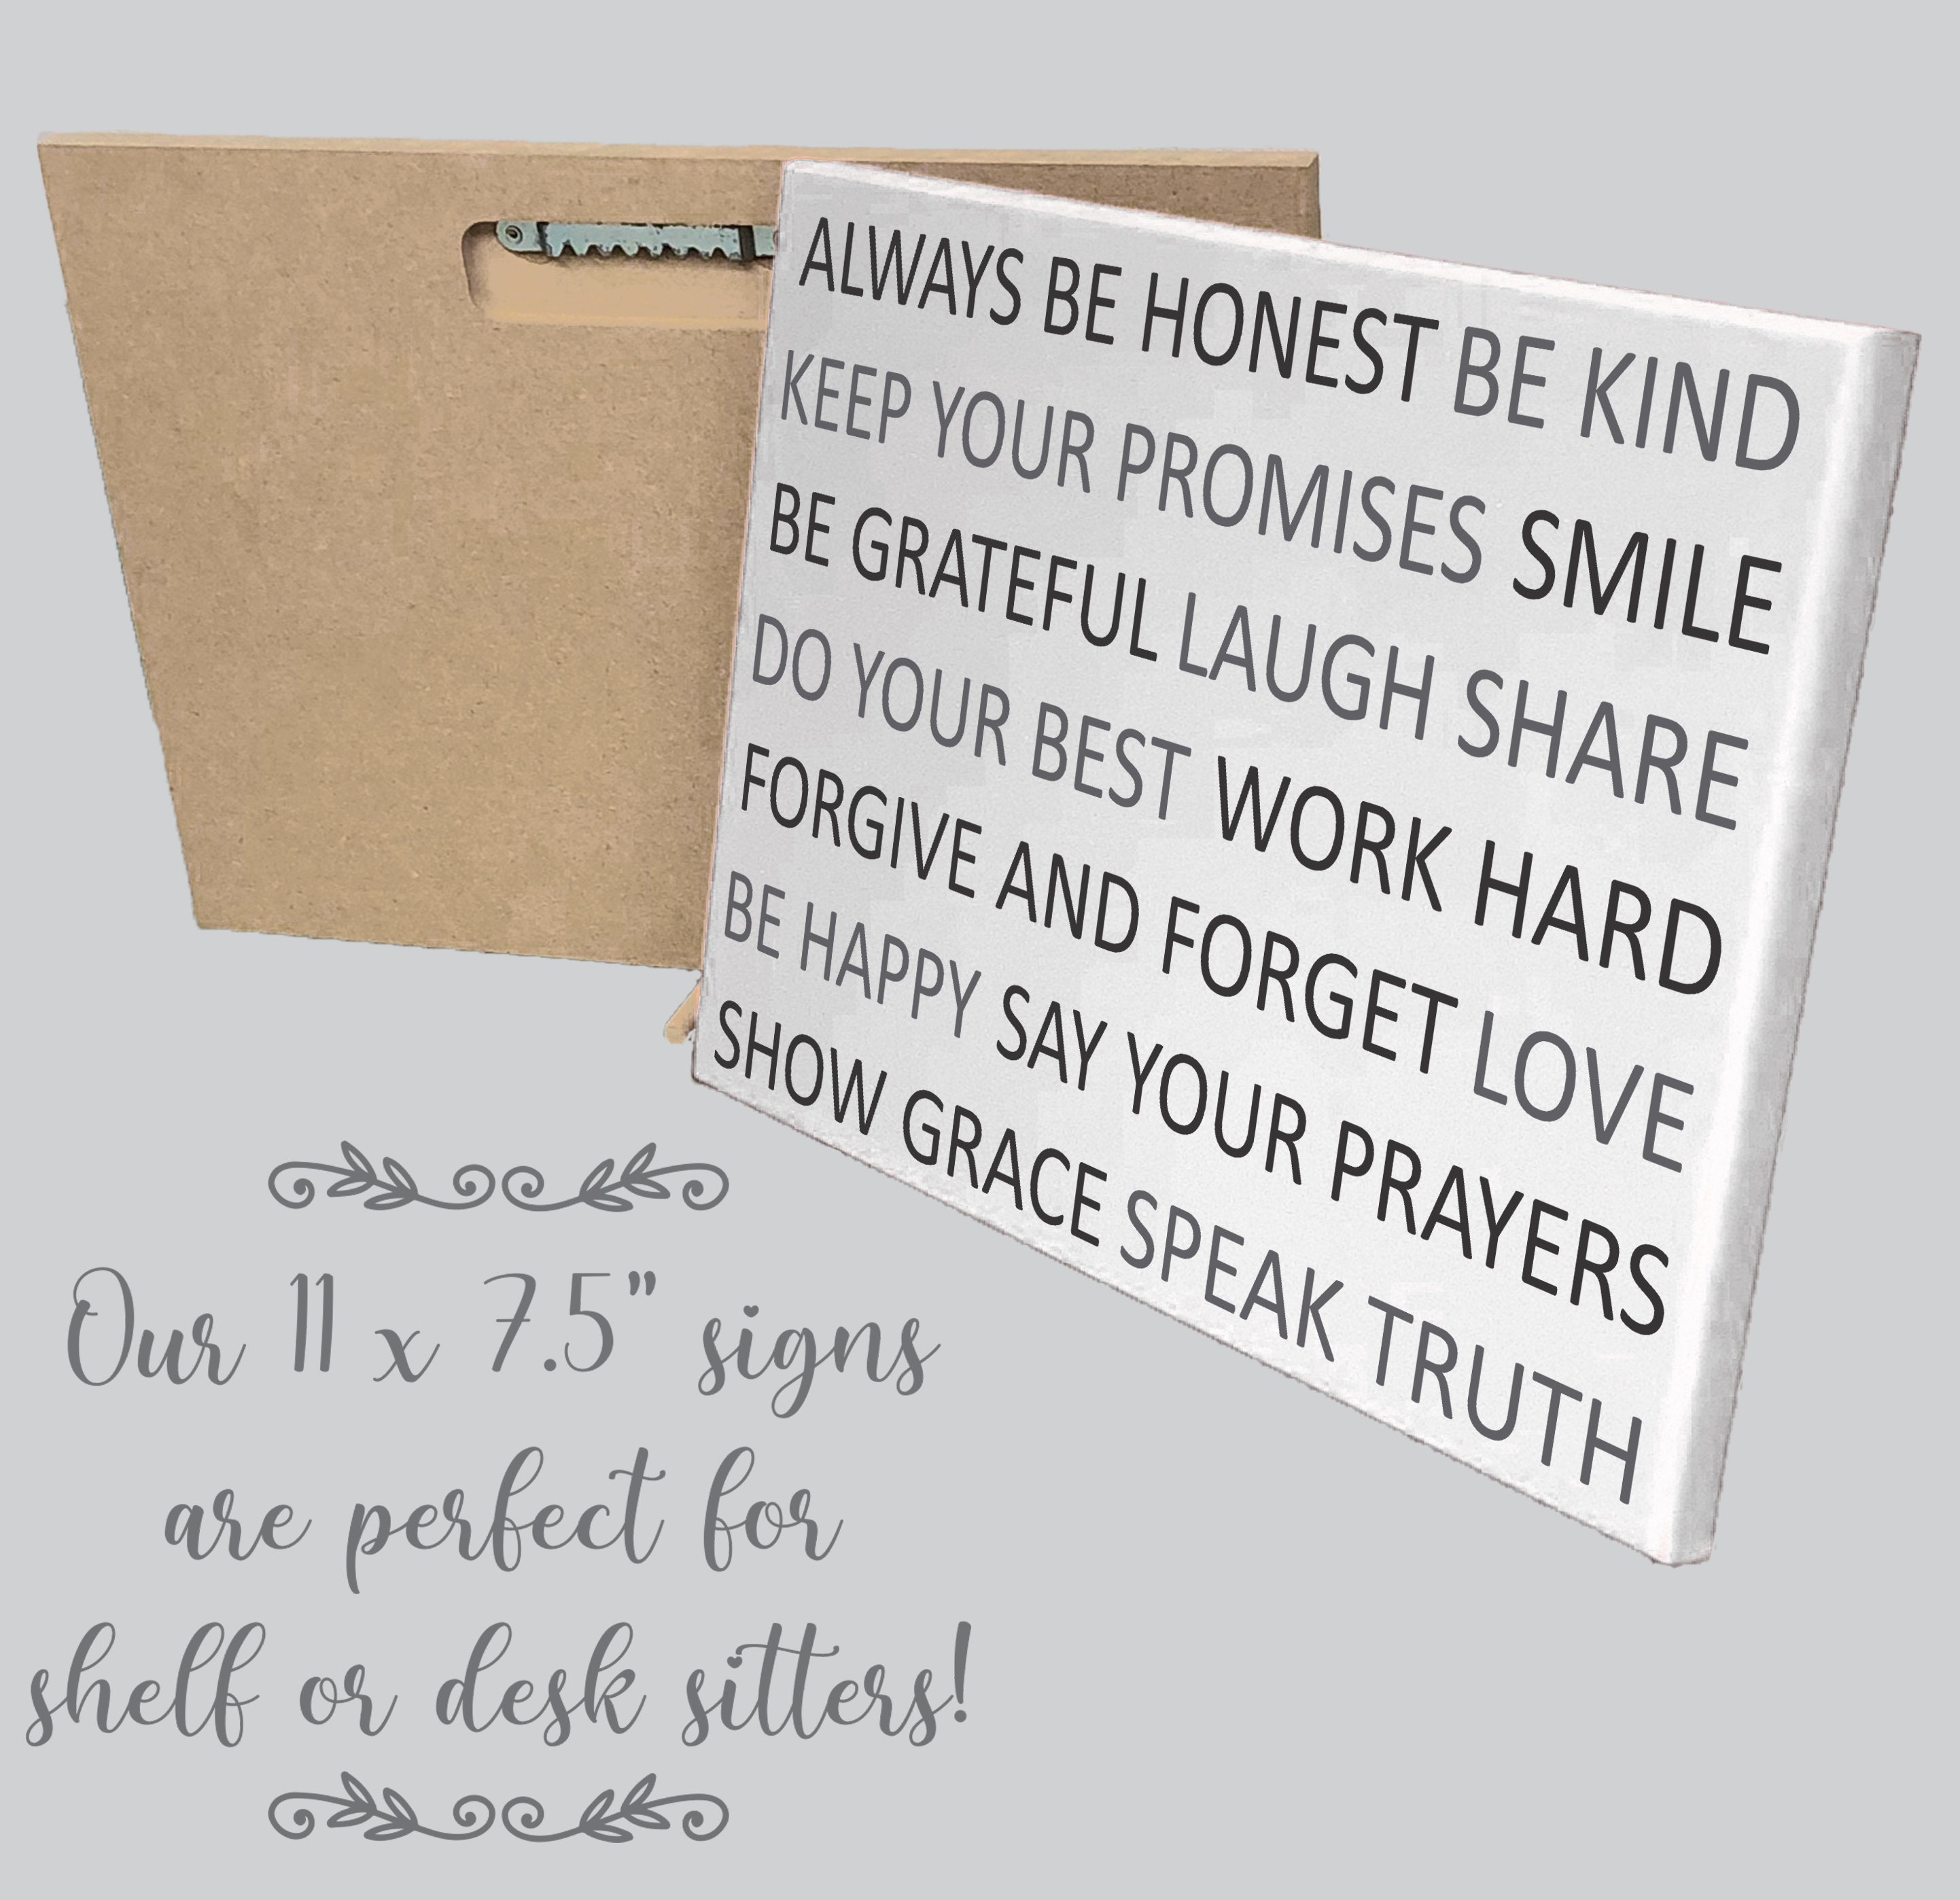 ALWAYS BE HONEST BE KIND
KEEP YOUR PROMISES SMILE
BE GRATEFUL LAUGH SHARE
DO YOUR BEST WORK HARD
FORGIVE AND FORGET LOVE
BE HAPPY SAY YOUR PRAYERS
SHOW GRACE SPEAK TRUTH
Our 11 x 7.5" signs
are perfect for
shelf or desk sitters!